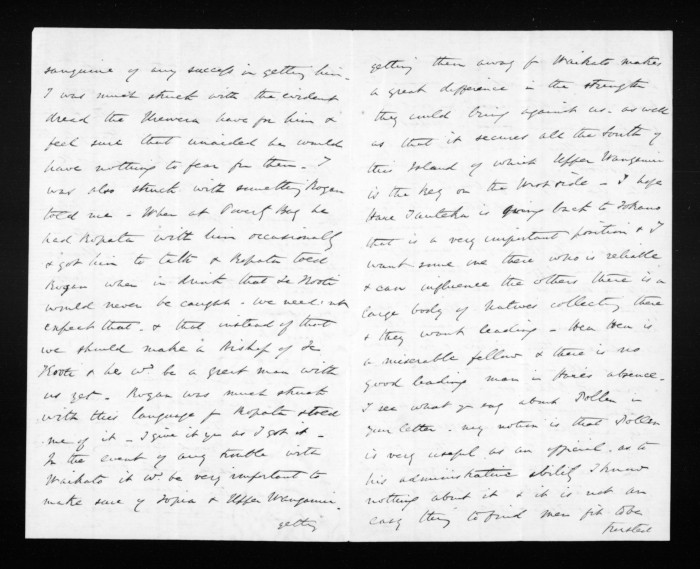 sanguine of any success in getting him -
I was much struck with the evident
dread the Urewera have for him &
feel sure that unaided he would
have nothing to fear fm them - I
was also struck with something Rogan
told me - When at Poverty Bay he
had Ropata with him occasionally
& got him to talk & Ropata told
Rogan when in drink that Te Kooti
would never be caught - we need not
expect that - & that instead of that
we should make a Bishop of Te
Kooti & he wd be a great man with
us yet - Rogan was much struck
with this language fr Ropata & told
me of it - I give it you as I got it -
In the event of any trouble with
Waikato it wd be very important to
make sure of Topia & Upper Wanganui -
getting
getting them away fm Waikato makes
a great difference in the strength
they could bring against us - as well
as that it secures all the South of
this Island of which Upper Wanganui
is the Key on the West side - I hope
Hare Tauteka is going back to Tokano
that is a very important position & I
want some one there who is reliable
& can influence the others there is a
large body of Natives collecting there
& they want leading - Heu Heu is
a miserable fellow & there is no
good leading man in Hare's absence -
I see what you say about Pollen in
your letter - my notion is that Pollen
is very useful as an official - as to
his administrative ability I know
nothing about it & it is not an
easy thing to find men fit to be
trusted